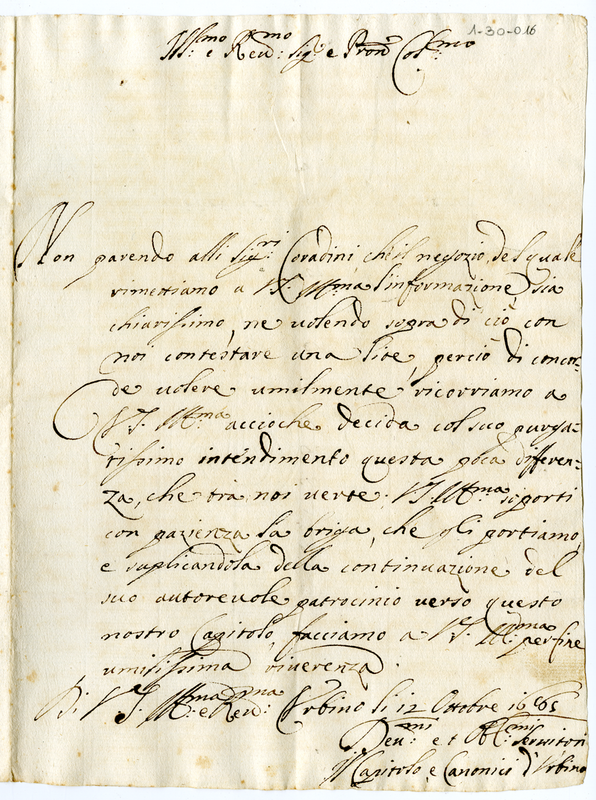 1-30-016
Ill:mo e Reu:mo Sig:e e Pron Col:mo
Non parendo alli Sig:ri Coradini che il negozio, del quale
rimettiamo a V.S. Ill:ma l'informazione, sia
chiarissimo, ne uolendo sopra di ciò con
noi contestare una lite, perciò di concor-
de uolere umilmente ricorriamo a
V.S. Ill:ma accioche decida col suo purga-
tissimo intendimento questa pòca differen-
za, che trà noi uerte. V.S. Ill:ma soporti
con pazienza la briga, che gli portiamo,
e suplicandola della continuazione del
suo autoreuole patrocinio uerso questo
nostro Capitolo, facciamo a V.S. Ill:ma per fine
umilissima riuerenza.
Di V.S. Ill:ma e Reu:ma Urbino li 12 Ottobre
Deu:mi et Obl:mi Seruitori
Il Capitolo, e Canonici d'Urbino